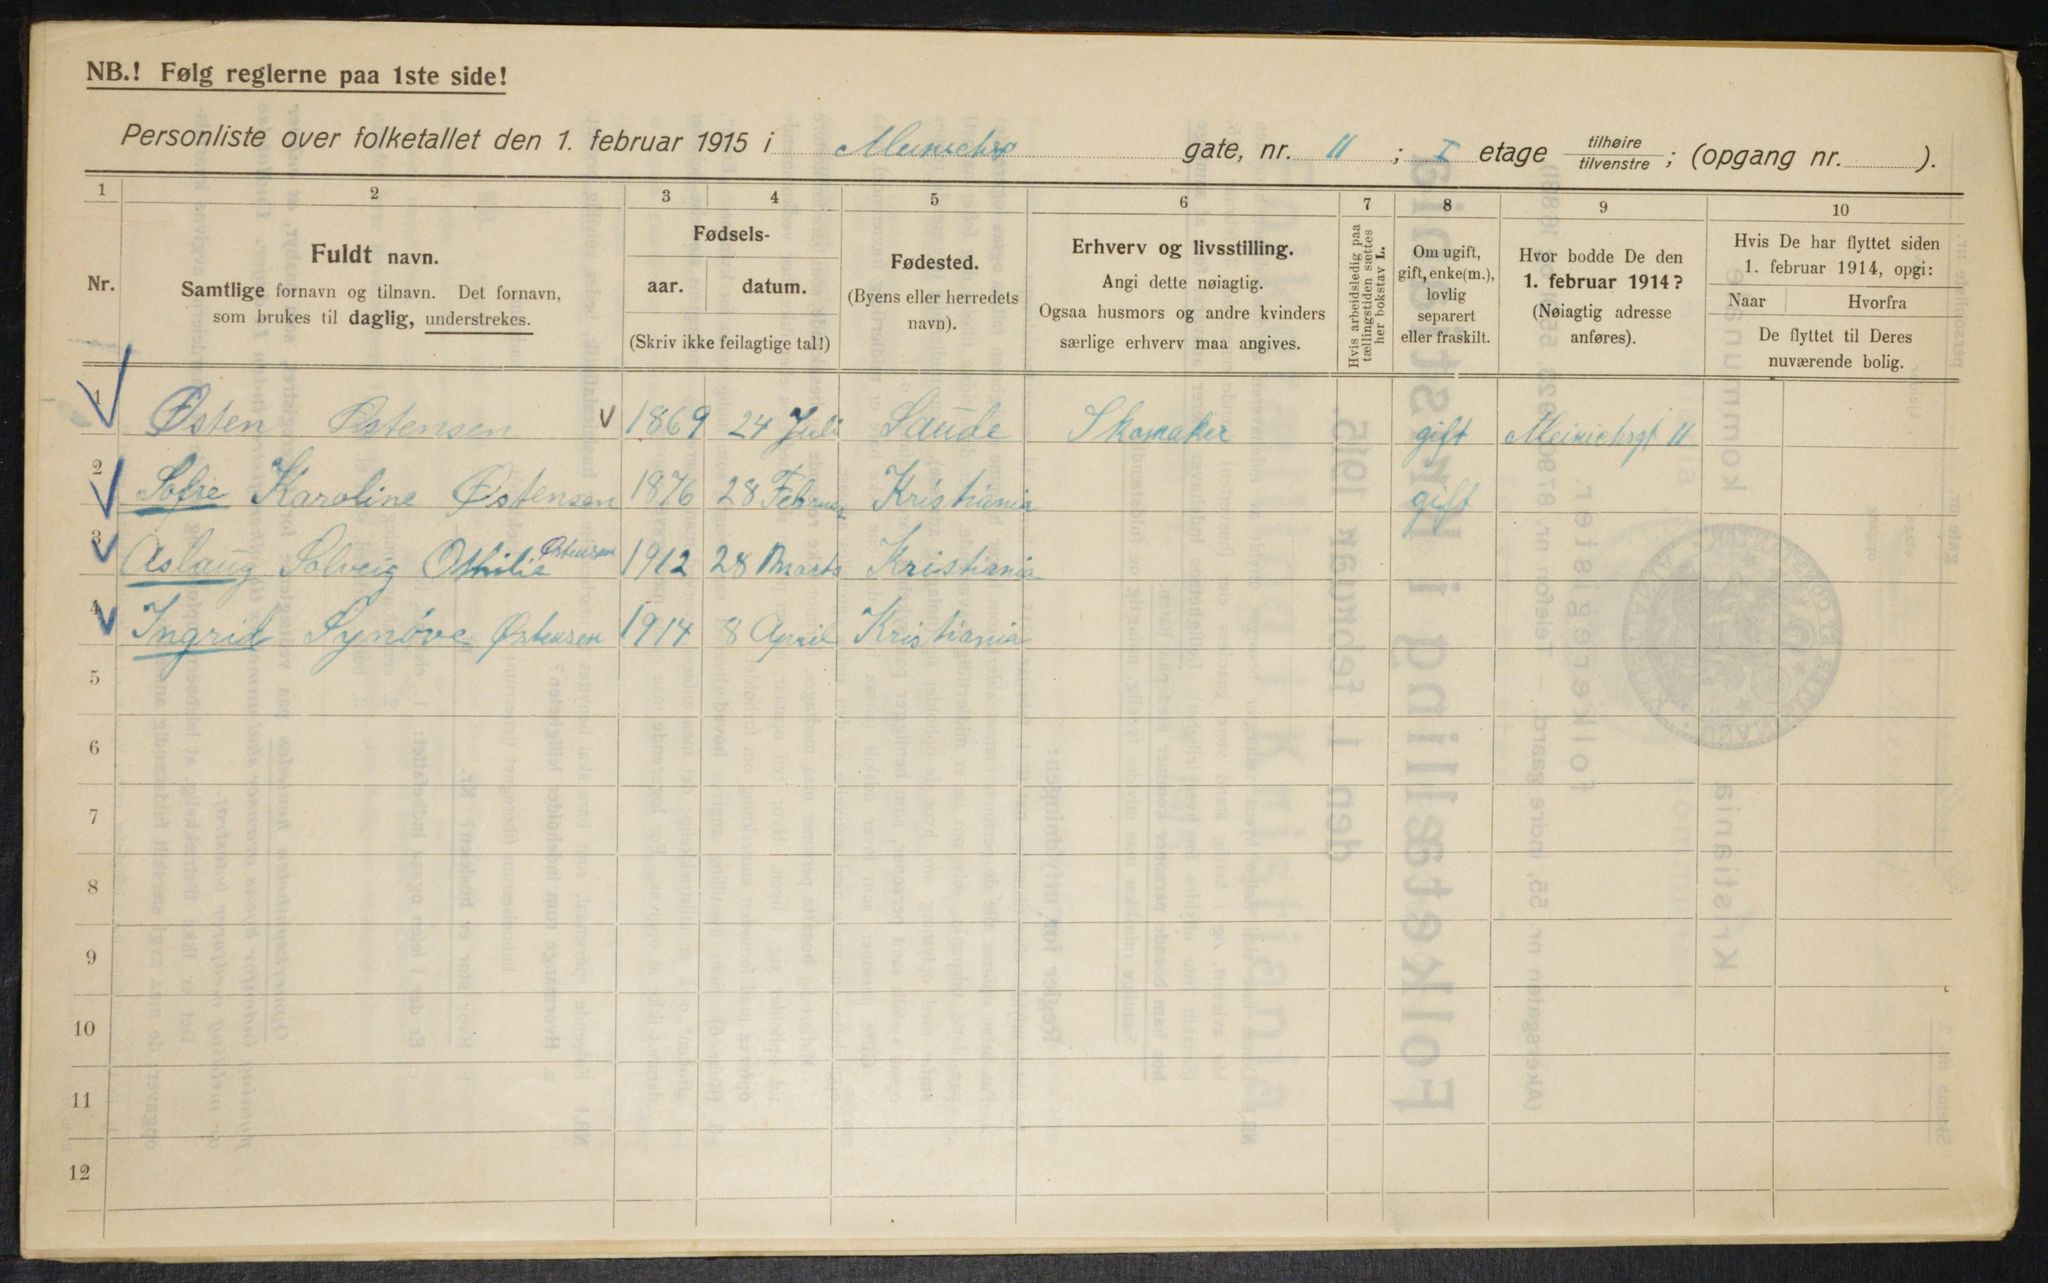 NB.! Følg reglerne paa 1ste side!
Personliste over folketallet den 1. februar 1915 i Meirichs gate, nr. 11 ; I etage tilhøire/tilvenstre ; (opgang nr. ).
1 2 3 4 5 6 7 8 9 10
Nr.
Fuldt navn.
Samtlige fornavn og tilnavn. Det fornavn,
som brukes til daglig, understrekes.
Fødsels-
aar. datum.
(Skriv ikke feilagtige tal!)
Fødested.
(Byens eller herredets
navn).
Erhverv og livsstilling.
Angi dette nøiagtig.
Ogsaa husmors og andre kvinders
særlige erhverv maa angives.
Hvis arbeidsledig paa
tællingstiden sættes
her bokstav L.
Om ugift,
gift, enke(m.),
lovlig
separert
eller fraskilt.
Hvor bodde De den
1. februar 1914?
(Nøiagtig adresse
anføres).
Hvis De har flyttet siden
1. februar 1914, opgi:
Naar Hvorfra
De flyttet til Deres
nuværende bolig.
1 Østen Østensen 1869 24 Juli Saude Skomaker gift Meirichsgt 11
2 Sofie Karoline Østensen 1876 28 Februar Kristiania gift
3 Aslaug Solveig Othilie Østensen 1912 28 Marts Kristiania
4 Ingrid Synøve Østensen 1914 8 April Kristiania
5
6
7
8
9
10
11
12